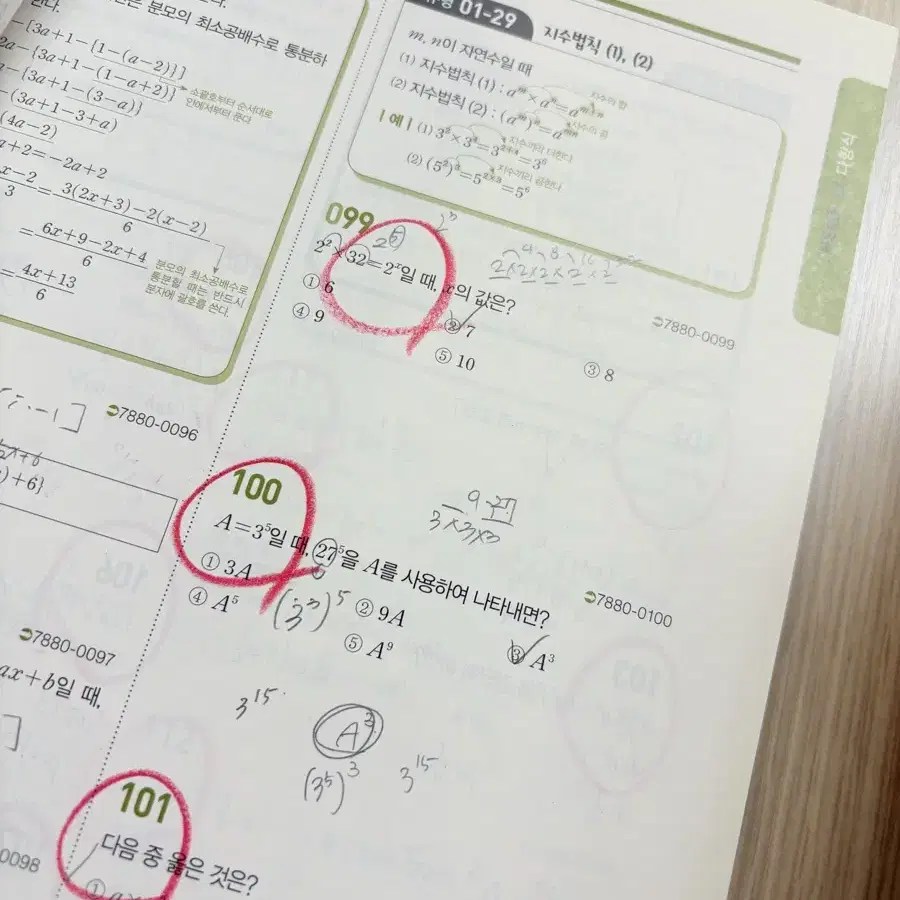 은 분모의 최소공배수로 통분하
한다.
-[3a+1-{1-(a-2)}]
2a-{3a+1-(1-a+2)}
소괄호부터 순서대로
안에서부터 푼다
-{3a+1-(3-a)}
-(3a+1-3+a)
(4a-2)
a+2=-2a+2
x-2/3=3(2x+3)-2(x-2)/6
=6x+9-2x+4/6
=4x+13/6
분모의 최소공배수로
통분할 때는 반드시
분자에 괄호를 쓴다.
7880-0096
7880-0097
ax+b일 때,
0098
01-29 지수법칙 (1), (2)
m, n이 자연수일 때
(1) 지수법칙 (1) : aᵐ×aⁿ=aᵐ⁺ⁿ
지수의 합
(2) 지수법칙 (2) : (aᵐ)ⁿ=aᵐⁿ
지수의 곱
| 예 | (1) 3²×3⁴=3²⁺⁴=3⁶
지수끼리 더한다
(2) (5²)³=5²ˣ³=5⁶
지수끼리 곱한다
다항식
099
2⁵
2ⁿ
2²×32=2ˣ일 때, x의 값은?
2×2×2×2×2
7880-0099
① 6
② 7
③ 8
④ 9
⑤ 10
100
9 27
3×3×3
A=3⁵일 때, 27⁵을 A를 사용하여 나타내면?
7880-0100
① 3A
② 9A
③ A³
④ A⁵
⑤ A⁹
(3ⁿ)⁵
3¹⁵
A³
(3⁵)³
3¹⁵
101
다음 중 옳은 것은?
①